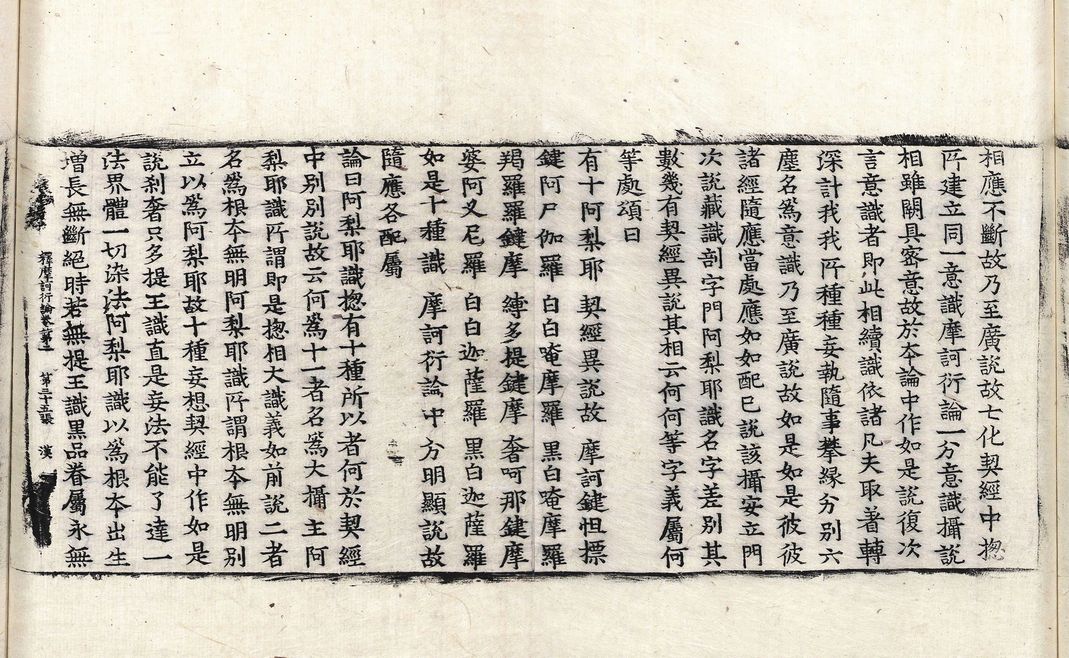 相應不斷故乃至廣說故七化契經中揔
所建立同一意識摩訶衍論一分意識攝說
相雖闕具密意故於夲論中作如是說復次
言意識者即此相續識依諸凡夫取著轉
深計我我所種種妄執隨事攀緣分別六
塵名爲意識乃至廣說故如是如是彼彼
諸經隨應當處應如如配已說該攝安立門
次說藏識剖字門阿梨耶識名字差別其
數幾有契經異說其相云何何等字義屬何
等處頌曰
有十阿梨耶 契經異說故 摩訶鍵怛摽
鍵阿尸伽羅 白白唵摩羅 黑白唵摩羅
羯羅羅鍵摩 縛多提鍵摩 奢呵那鍵摩
婆阿叉尼羅 白白迦薩羅 黑白迦薩羅
如是十種識 摩訶衍論中 方明顯說故
隨應各配屬
論曰阿梨耶識揔有十種所以者何於契經
中別別說故云何爲十一者名爲大攝主阿
梨耶識所謂即是揔相大識義如前說二者
名爲根夲無明阿梨耶識所謂根夲無明別
立以爲阿梨耶故十種妄想契經中作如是
說剎奢只多提王識直是妄法不能了達一
法界體一切染法阿梨耶識以爲根夲出生
增長無斷絕時若無提王識黑品眷屬永無
釋摩訶衍論卷第二 第二十三張 漢